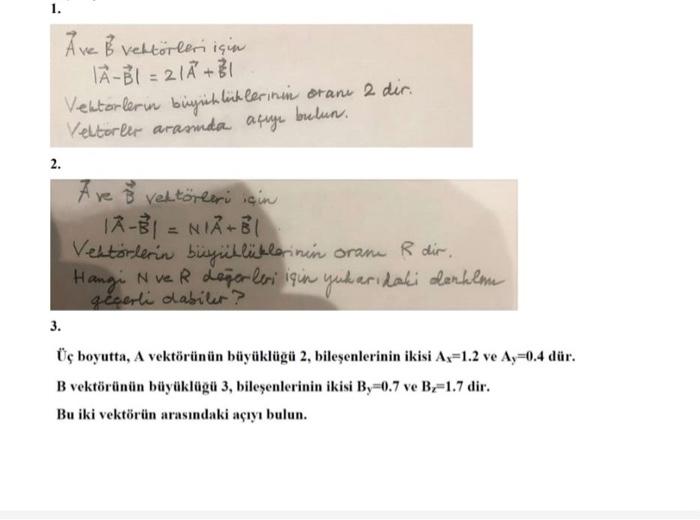 1.
A⃗ ve B⃗ vektörleri için
|A⃗-B⃗| = 2|A⃗+B⃗|
Vektörlerin büyüklüklerinin oranı 2 dir.
Vektörler arasında açıyı bulun.
2.
A⃗ ve B⃗ vektörleri için
|A⃗-B⃗| = N|A⃗+B⃗|
Vektörlerin büyüklüklerinin oranı R dir.
Hangi N ve R değerleri için yukarıdaki denklem
geçerli olabilir?
3.
Üç boyutta, A vektörünün büyüklüğü 2, bileşenlerinin ikisi Ax=1.2 ve Ay=0.4 dür.
B vektörünün büyüklüğü 3, bileşenlerinin ikisi By=0.7 ve Bz=1.7 dir.
Bu iki vektörün arasındaki açıyı bulun.